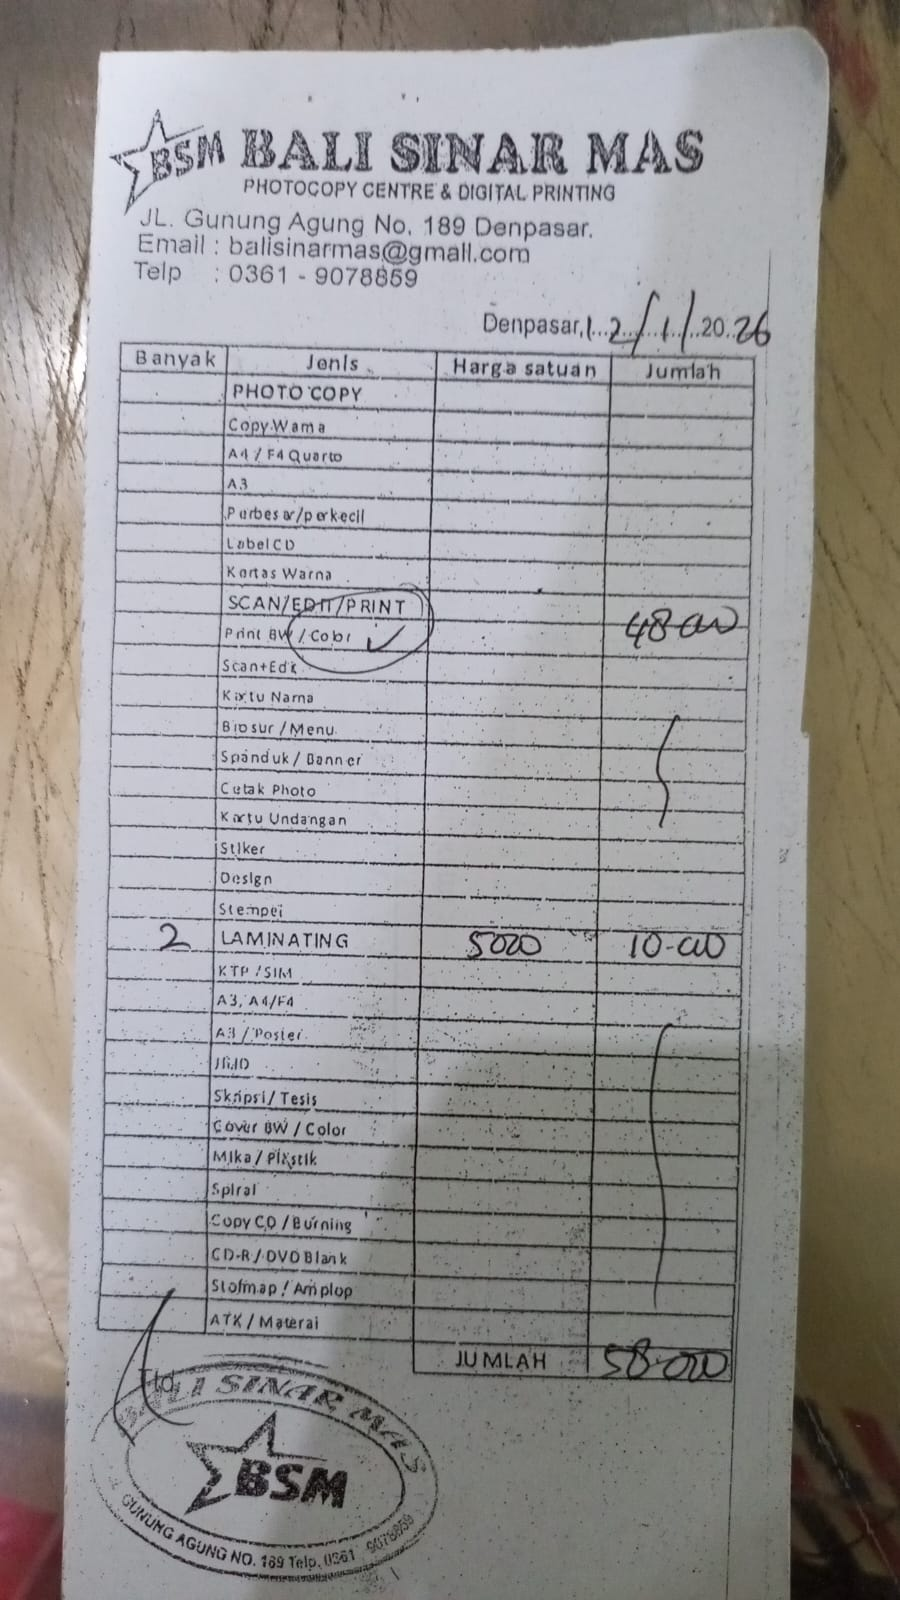 BSM BALI SINAR MAS
PHOTOCOPY CENTRE & DIGITAL PRINTING
JL. Gunung Agung No. 189 Denpasar.
Email : balisinarmas@gmail.com
Telp : 0361 - 9078859
Denpasar, 12/1/2026
Banyak Jenis Harga satuan Jumlah
PHOTO COPY
Copy Warna
A4 / F4 Quarto
A3
Perbesar/perkecil
Label CD
Kertas Warna
SCAN/EDIT/PRINT
Print BW / Color ✓ 48-000
Scan+Edit
Kartu Nama
Brosur / Menu
Spanduk / Banner
Cetak Photo
Kartu Undangan
Stiker
Design
Stempel
2 LAMINATING 5000 10-000
KTP / SIM
A3, A4/F4
A3 / Poster
JILID
Skripsi / Tesis
Cover BW / Color
Mika / Plastik
Spiral
Copy CD / Burning
CD-R / DVD Blank
Stofmap / Amplop
ATK / Materai
JUMLAH 58-000
Ttd,
BALI SINAR MAS
BSM
GUNUNG AGUNG NO. 189 Telp. 0361 9078859